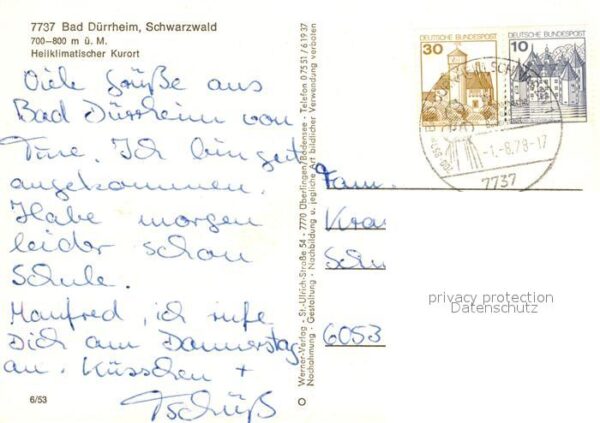 7737 Bad Dürrheim, Schwarzwald
700–800 m ü. M.
Heilklimatischer Kurort
Viele Grüße aus
Bad Dürrheim von
Ich bin gut
angekommen.
Habe morgen
leider schon
Schule.
Manfred, ich rufe
Dich am Donnerstag
an. Küsschen +
Tschüß
6/53
Werner-Verlag · St.-Ulrich-Straße 54 · 7770 Überlingen/Bodensee · Telefon 07551/61937
Nachahmung · Gestaltung · Nachbildung u. jegliche Art bildlicher Verwendung verboten
30 DEUTSCHE BUNDESPOST
10 DEUTSCHE BUNDESPOST
-1.-8.79-17
7737
Fam.
6053
privacy protection
Datenschutz